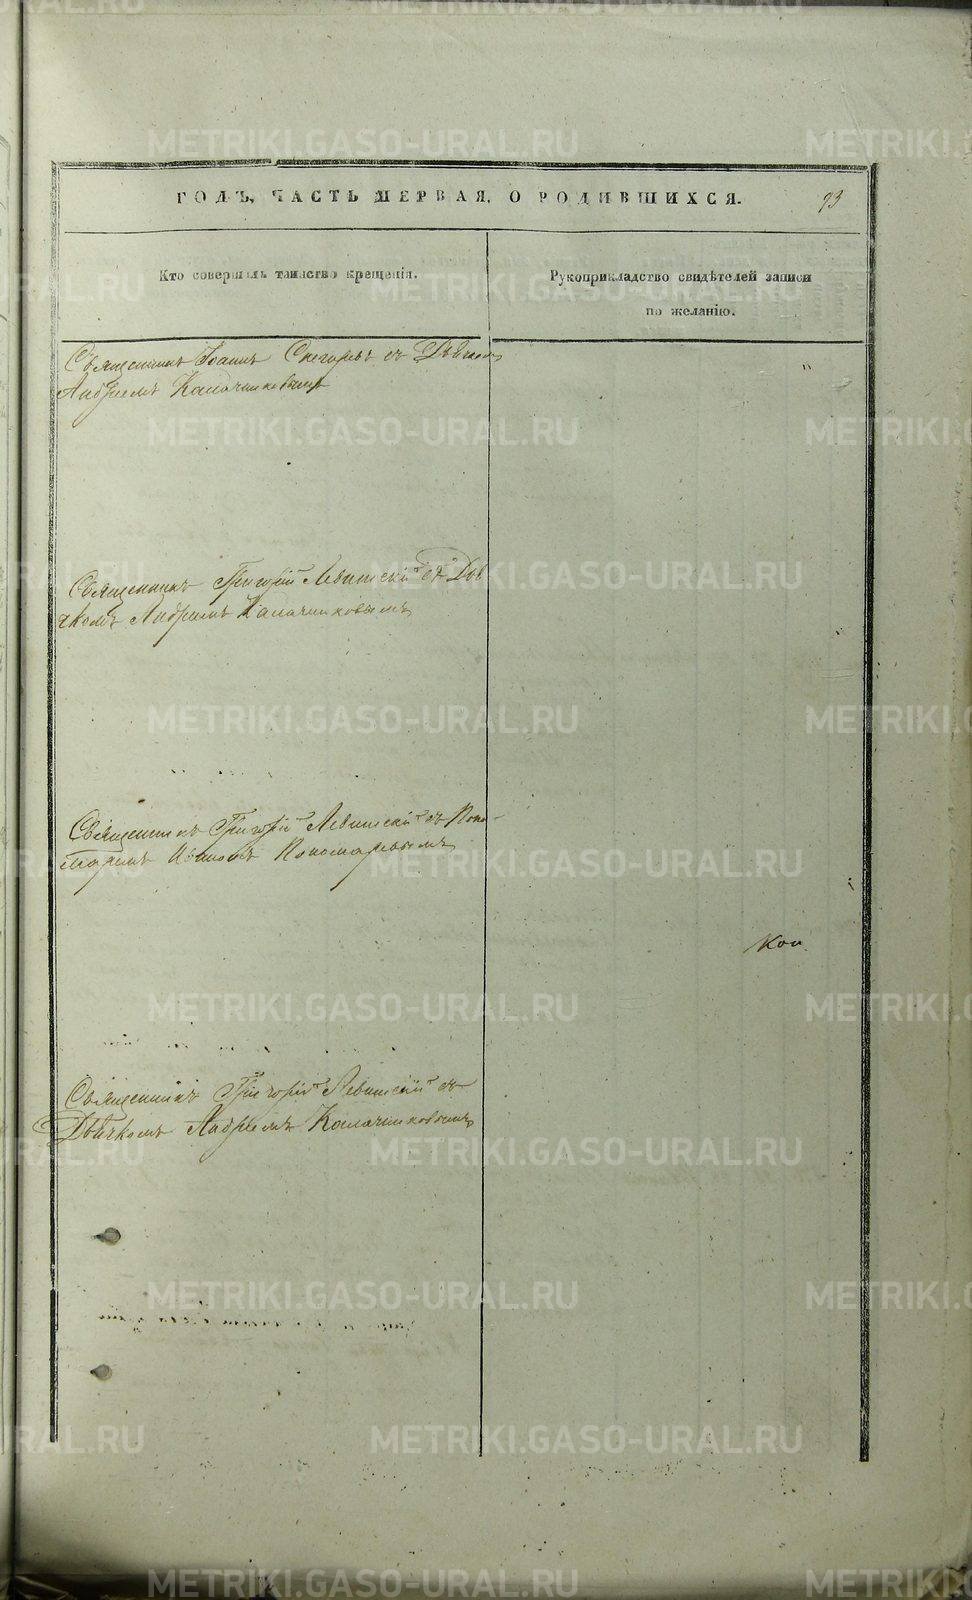 ГОДЪ, ЧАСТЬ ПЕРВАЯ, О РОДИВШИХСЯ.
93
Кто совершалъ таинство крещенія.
Рукоприкладство свидѣтелей записи
по желанію.
Священникъ Іоаннъ съ Дьячкомъ
Андреемъ Калачниковымъ
Священникъ Григорій Левитскій съ Дья
чкомъ Андреемъ Калачниковымъ
Священникъ Григорій Левитскій съ Поно-
маремъ Иваномъ Пономаревымъ
Коп.
Священникъ Григорій Левитскій съ
Дьячкомъ Андреемъ Калачниковымъ
METRIKI.GASO-URAL.RU